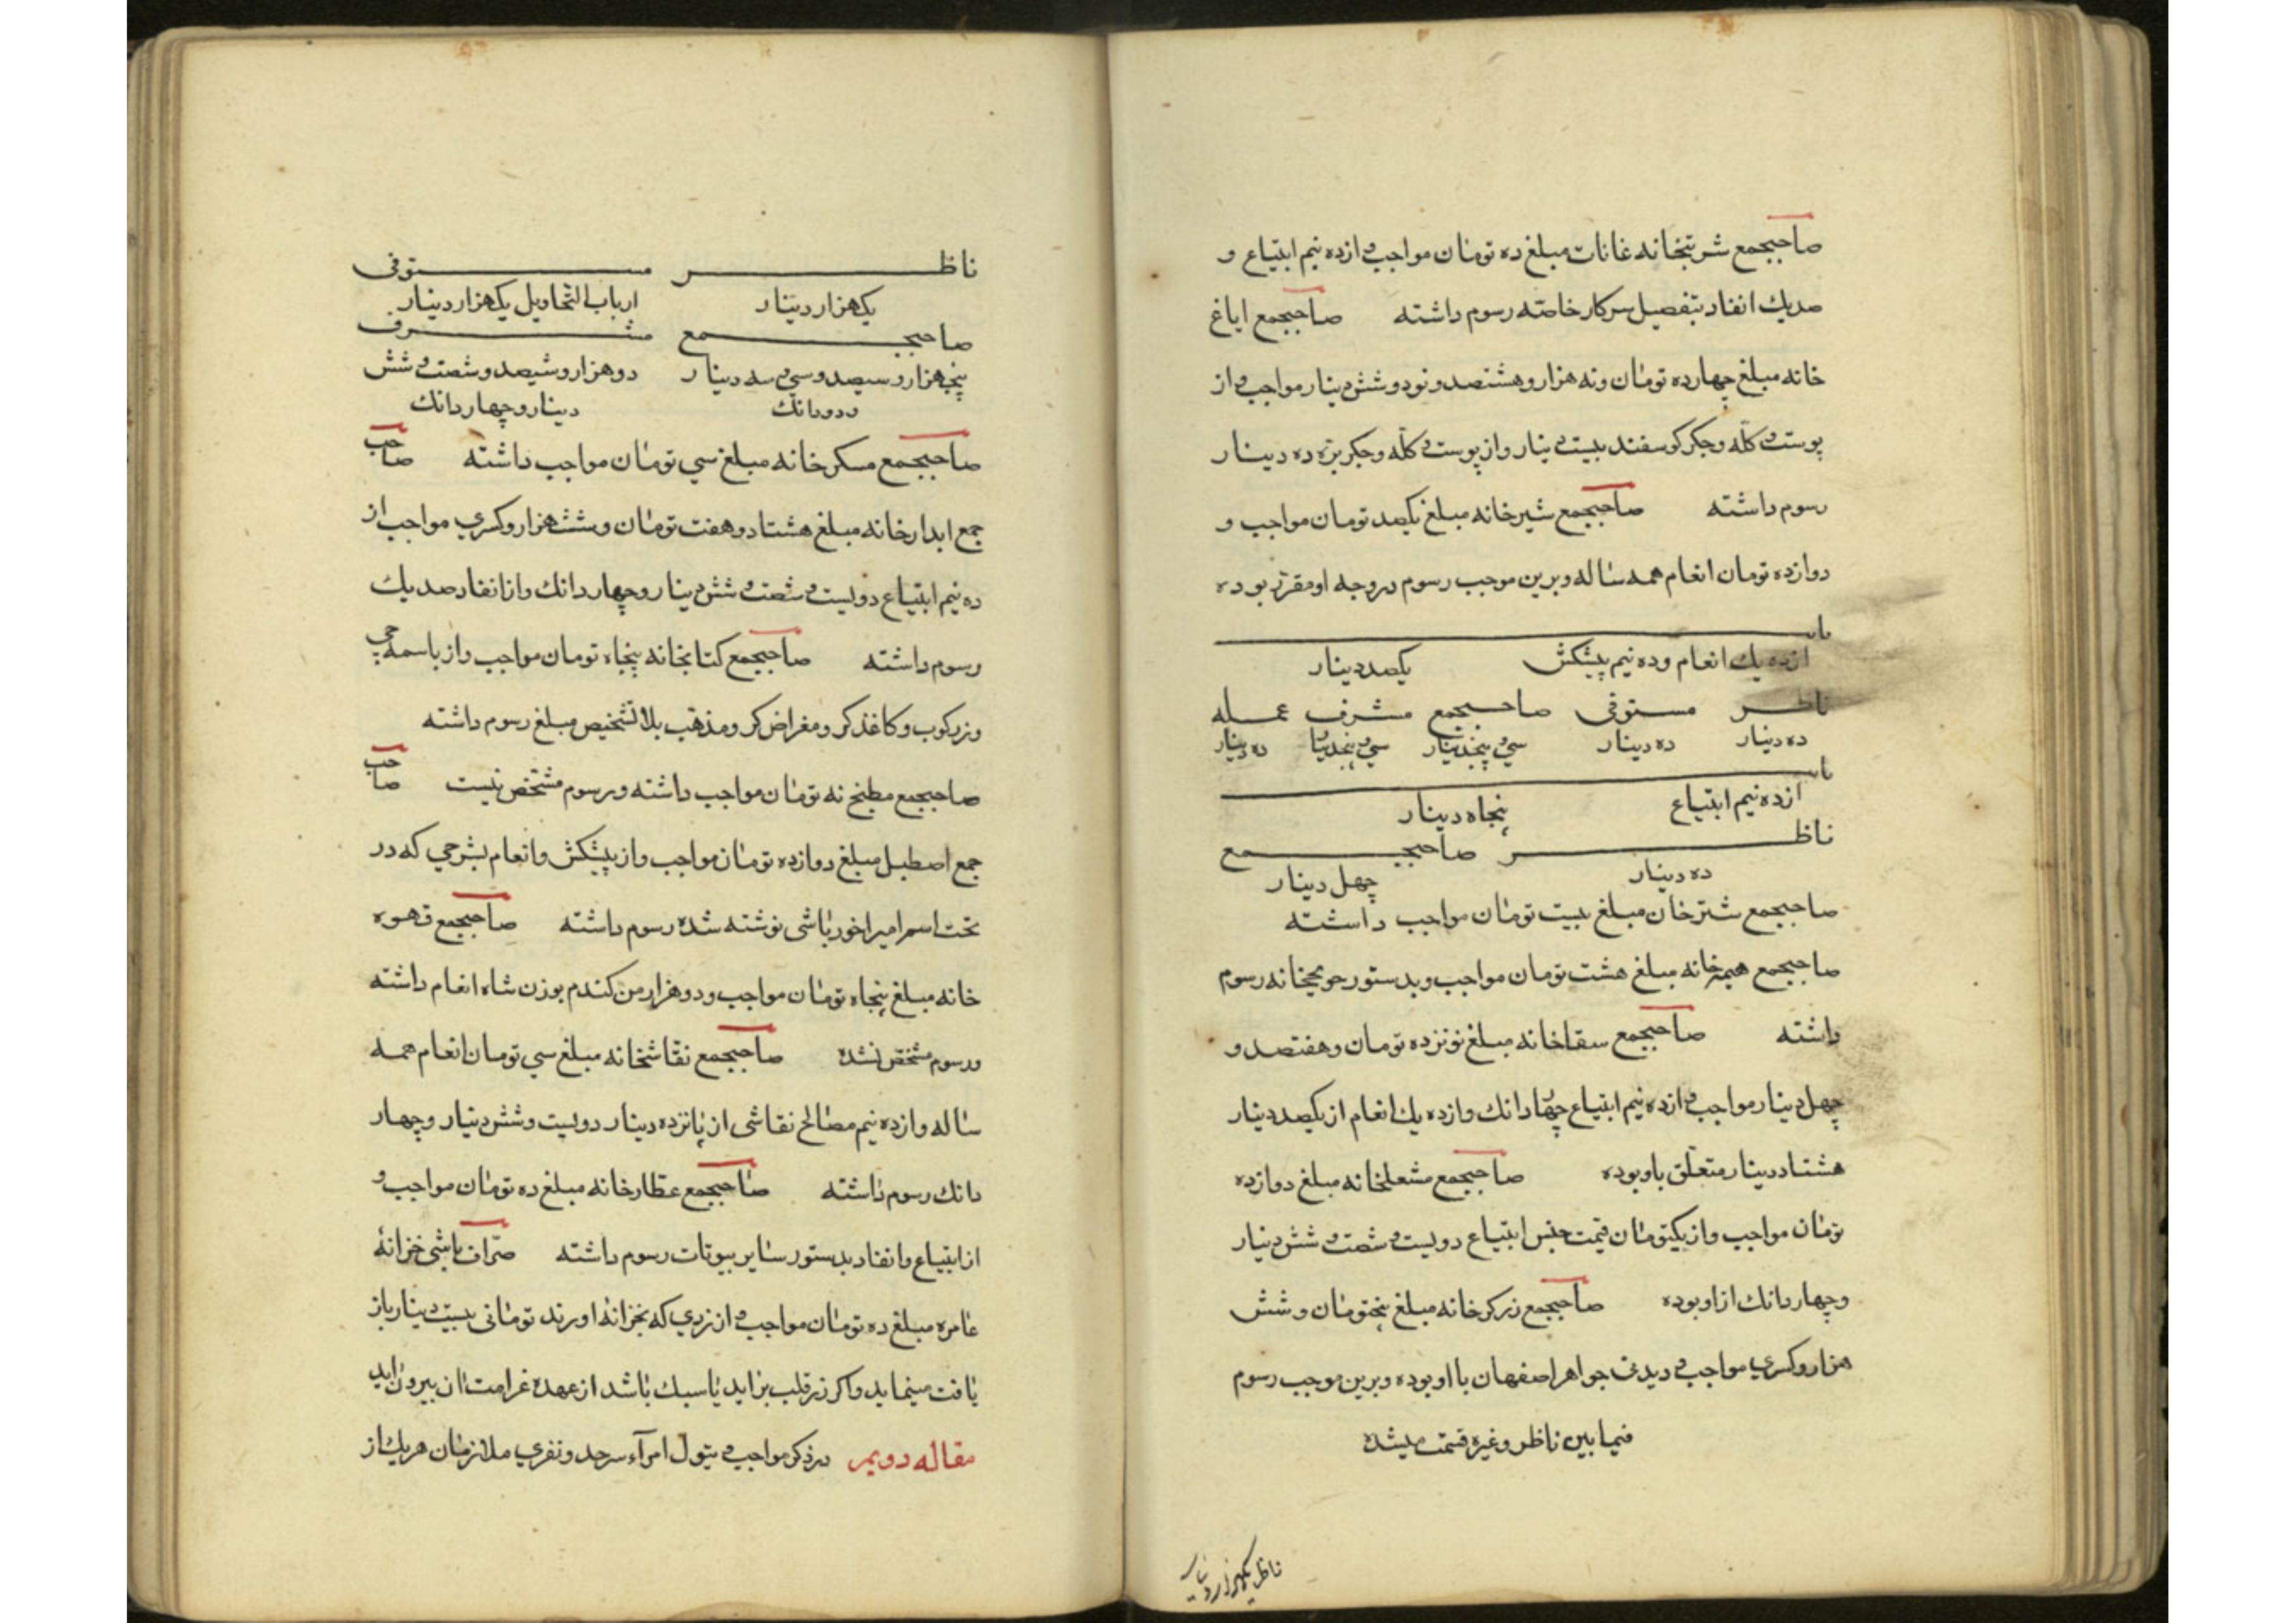 صاحبجمع شربتخانه غانات مبلغ ده تومان مواجب و از ده نیم ابتیاع و
صدیك انفاد بتفصیل سرکار خاصّه رسوم داشته صاحبجمع ایاغ
خانه مبلغ چهارده تومان ونه هزار و هشتصد و نود و شش دینار مواجب و از
پوست و کلّه و جکر کوسفند بیست دینار و از پوست و کلّه و جکر بزه ده دینار
رسوم داشته صاحبجمع شیرخانه مبلغ یکصد تومان مواجب و
دوازده تومان انعام همه ساله و برین موجب رسوم در وجه او مقرّر بوده
از ده یك انعام و ده نیم پیشکش یکصد دینار
ناظر مستوفی صاحبجمع مشرف عمله
ده دینار ده دینار سی و پنجدینار سی و پنجدینار ده دینار
از ده نیم ابتیاع پنجاه دینار
ناظر صاحبجمع
ده دینار چهل دینار
صاحبجمع شترخان مبلغ بیست تومان مواجب داشته
صاحبجمع هیمه خانه مبلغ هشت تومان مواجب و بدستور حویجخانه رسوم
داشته صاحبجمع سقاخانه مبلغ نوزده تومان و هفتصد و
چهل دینار مواجب و از ده نیم ابتیاع چهار دانك و از ده یك انعام از یکصد دینار
هشتاد دینار متعلّق باو بوده صاحبجمع مشعلخانه مبلغ دوازده
تومان مواجب و از یکتومان قیمت جنس ابتیاع دویست و شصت و شش دینار
و چهار دانك از او بوده صاحبجمع زرکرخانه مبلغ پنجتومان و شش
هزار و کسري مواجب و دیدنی جواهر اصفهان با او بوده و برین موجب رسوم
فیما بین ناظر و غیره قسمت میشده
ناظر یکهزار دینار
ناظر مستوفی
یکهزار دینار ارباب التحاویل یکهزار دینار
صاحبجمع مشرف
پنجهزار و سیصد و سی و سه دینار دو هزار و ششصد و شصت و شش
و دو دانك دینار و چهار دانك
صاحبجمع مسکرخانه مبلغ سی تومان مواجب داشته صاحب
جمع ابدارخانه مبلغ هشتاد و هفت تومان و شش هزار و کسري مواجب از
ده نیم ابتیاع دویست و شصت و شش دینار و چهار دانك و از انفاد صدیك
رسوم داشته صاحبجمع کتابخانه پنجاه تومان مواجب و از باسمه چی
و زرکوب و کاغذکر و مقراض کر و مذهّب بلا تشخیص مبلغ رسوم داشته
صاحبجمع مطبخ نه تومان مواجب داشته و رسوم مشخّص نیست صاحب
جمع اصطبل مبلغ دوازده تومان مواجب و از پیشکش و انعام بشرحی که در
تحت اسم امیراخورباشی نوشته شده رسوم داشته صاحبجمع قهوه
خانه مبلغ پنجاه تومان مواجب و دو هزار من کندم بوزن شاه انعام داشته
و رسوم مشخّص نشده صاحبجمع نقّاشخانه مبلغ سی تومان انعام همه
ساله و از ده نیم مصالح نقاشی از پانزده دینار دویست و شش دینار و چهار
دانك رسوم داشته صاحبجمع عطّارخانه مبلغ ده تومان مواجب و
از ابتیاع و انفاد بدستور سایر بیوتات رسوم داشته صرّاف باشی خزانهٔ
عامره مبلغ ده تومان مواجب و از زري که بخزانه اورند تومانی بیست دینار باز
یافت مینماید و اکر زر قلب براید یا سبك باشد از عهده غرامت ان بیرون اید
مقاله دویم در ذکر مواجب و تیول امرآء سرحد و نفري ملازمان هریك از